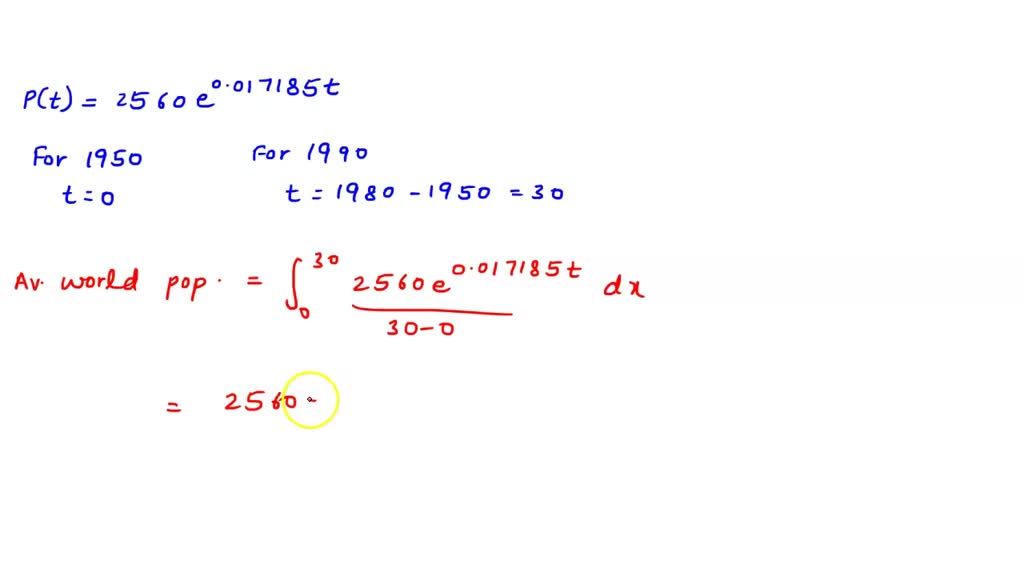 P(t) = 2560 e^0.017185t
For 1950 For 1990
t = 0 t = 1980 - 1950 = 30
Av. world pop. = ∫_0^30 2560 e^0.017185t / 30-0 dx
= 2560